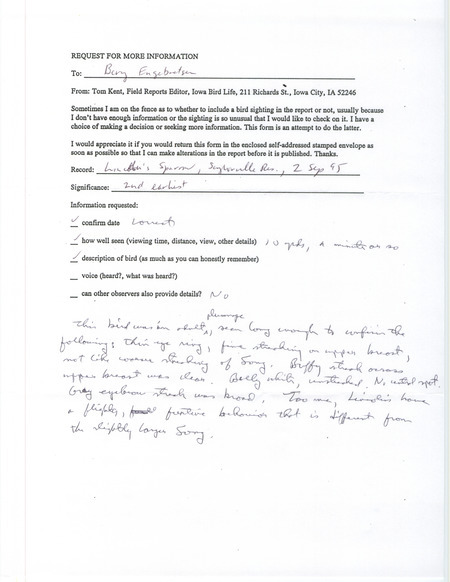 REQUEST FOR MORE INFORMATION
To: Bery Engebretsen
From: Tom Kent, Field Reports Editor, Iowa Bird Life, 211 Richards St., Iowa City, IA 52246
Sometimes I am on the fence as to whether to include a bird sighting in the report or not, usually because
I don't have enough information or the sighting is so unusual that I would like to check on it. I have a
choice of making a decision or seeking more information. This form is an attempt to do the latter.
I would appreciate it if you would return this form in the enclosed self-addressed stamped envelope as
soon as possible so that I can make alterations in the report before it is published. Thanks.
Record: Lincoln's Sparrow, Saylorville Res., 2 Sep 95
Significance: 2nd earliest
Information requested:
✓ confirm date correct
✓ how well seen (viewing time, distance, view, other details) 10 yds, a minute or so
✓ description of bird (as much as you can honestly remember)
_ voice (heard?, what was heard?)
_ can other observers also provide details? No
plumage
This bird was an adult, seen long enough to confirm the
following: thin eye ring, fine streaking on upper breast,
not like coarse streaking of Song. Buffy streak across
upper breast was clear. Belly white, unstreaked. No central spot.
Gray eyebrow streak was broad. Too me, Lincoln's have
a flighty, furtive behavior that is different from
the slightly larger Song.